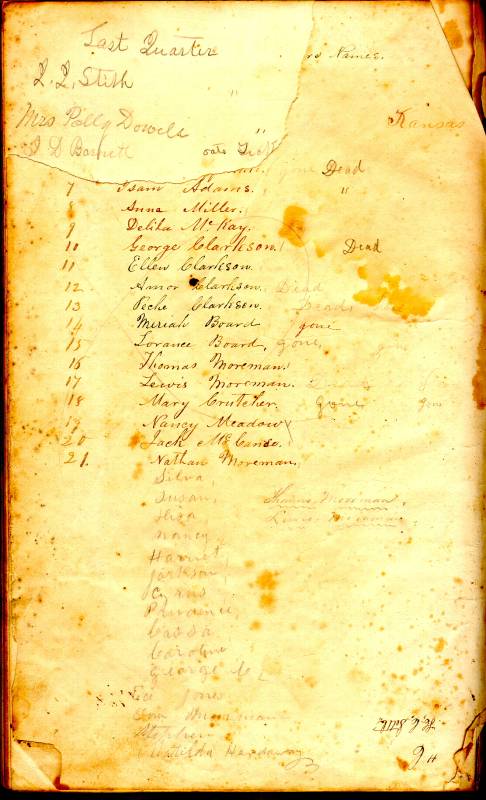 Last Quarter
Names.
Q. Q. Stith
"
Mrs Polly Dowels
"
Kansas
J D Barnett
gone Dead
7 Isam Adams. "
8 Anna Miller.
9 Delila McKay.
10 George Clarkson. Dead
11 Ellen Clarkson.
12 Amor Clarkson. Dead
13 Peche Clarkson. Dead
14 Meriah Board gone
15 Lorance Board, gone,
16 Thomas Moreman.
17 Lewis Moreman.
18 Mary Crutcher. gone gone
19 Nancy Meadow
20 Jack McCanse.
21. Nathan Moreman.
Silva,
Susan, Thomas Mooiman,
Lewis
Nancy,
Harriet,
Jackson,
Cyrus
Prudence,
Cassa
Caroline
George
Jones
Stephen
Matilda Hardaway